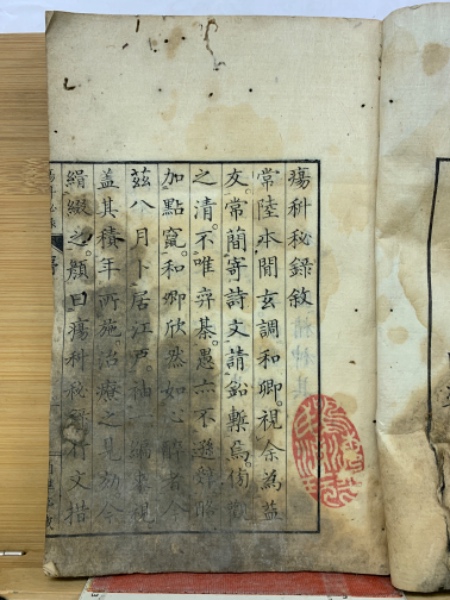 瘍科秘録敘
常陸本間玄調和卿。視余為益
友。常簡寄詩文請鉛槧焉。傍
之清。不唯弈棊。愚亦不
加點竄。和卿欣然如心醉者。今
茲八月卜居江戸。袖一編來視
蓋其積年所施。治療之見効。今
緝綴之。顏曰瘍科秘録。行文措